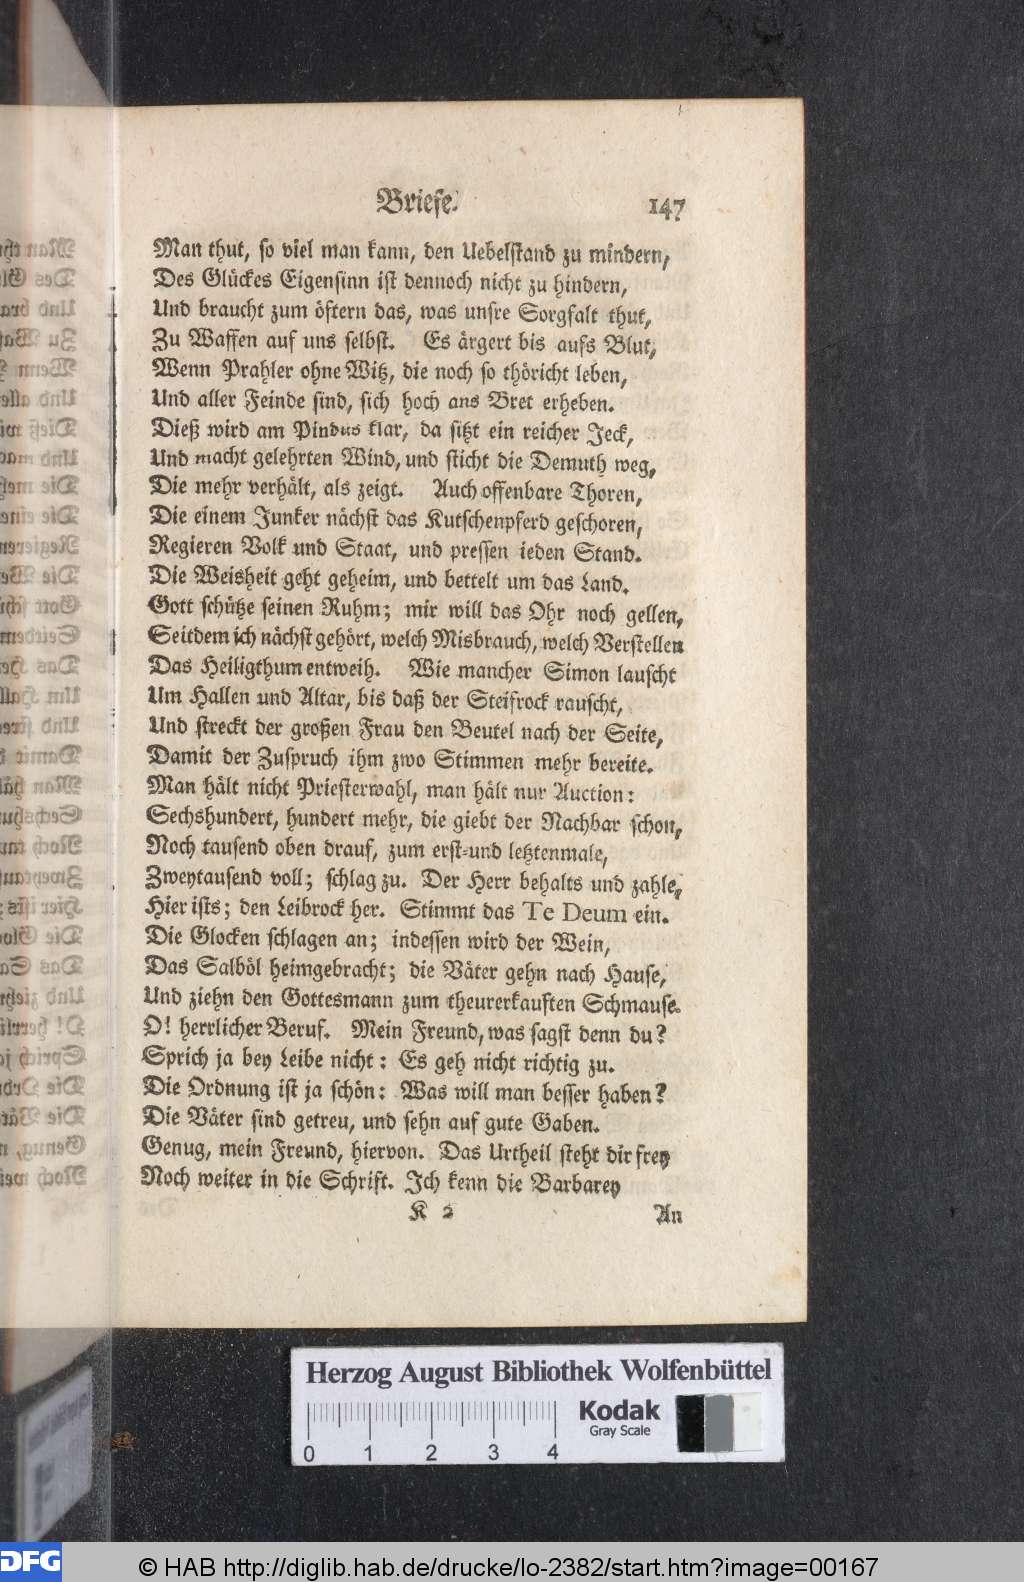 Briefe.
147
Man thut, so viel man kann, den Uebelstand zu mindern,
Des Glückes Eigensinn ist dennoch nicht zu hindern,
Und braucht zum öftern das, was unsre Sorgfalt thut,
Zu Waffen auf uns selbst. Es ärgert bis aufs Blut,
Wenn Prahler ohne Witz, die noch so thöricht leben,
Und aller Feinde sind, sich hoch ans Bret erheben.
Dieß wird am Pindus klar, da sitzt ein reicher Jeck,
Und macht gelehrten Wind, und sticht die Demuth weg,
Die mehr verhält, als zeigt. Auch offenbare Thoren,
Die einem Junker nächst das Kutschenpferd geschoren,
Regieren Volk und Staat, und pressen ieden Stand.
Die Weisheit geht geheim, und bettelt um das Land.
Gott schütze seinen Ruhm; mir will das Ohr noch gellen,
Seitdem ich nächst gehört, welch Misbrauch, welch Verstellen
Das Heiligthum entweih. Wie mancher Simon lauscht
Um Hallen und Altar, bis daß der Steifrock rauscht,
Und streckt der großen Frau den Beutel nach der Seite,
Damit der Zuspruch ihm zwo Stimmen mehr bereite.
Man hält nicht Priesterwahl, man hält nur Auction:
Sechshundert, hundert mehr, die giebt der Nachbar schon,
Noch tausend oben drauf, zum erst-und letztenmale,
Zweytausend voll; schlag zu. Der Herr behalts und zahle,
Hier ists; den Leibrock her. Stimmt das Te Deum ein.
Die Glocken schlagen an; indessen wird der Wein,
Das Salböl heimgebracht; die Väter gehn nach Hause,
Und ziehn den Gottesmann zum theurerkauften Schmause.
O! herrlicher Beruf. Mein Freund, was sagst denn du?
Sprich ja bey Leibe nicht: Es geh nicht richtig zu.
Die Ordnung ist ja schön: Was will man besser haben?
Die Väter sind getreu, und sehn auf gute Gaben.
Genug, mein Freund, hiervon. Das Urtheil steht dir frey
Noch weiter in die Schrift. Ich kenn die Barbarey
K 2
An
Herzog August Bibliothek Wolfenbüttel
Kodak
Gray Scale
0 1 2 3 4
DFG
© HAB http://diglib.hab.de/drucke/lo-2382/start.htm?image=00167